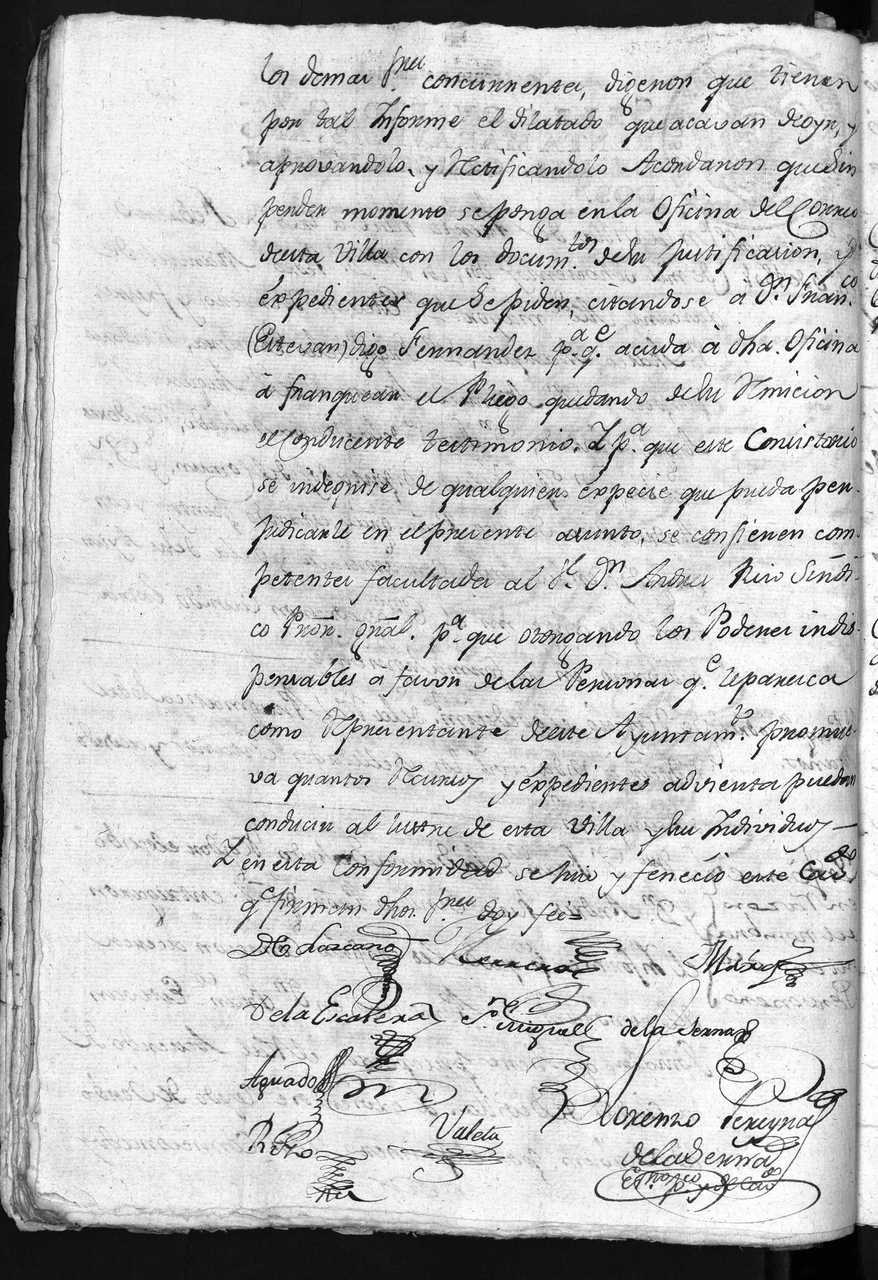 los demas Sres. concurrentes, digeron que tienen
por tal Informe el dilatado que acavan de oyr, y
aprovandolo, y Ratificandolo Acordaron que sin
perder momento se ponga en la Oficina del Correo
de esta Villa con los docum.tos de su justificacion, y
expedientes que se piden, citandose a Dn. Fran.co
(Estevan) digo Fernandez p.a q.e acuda à dha. Oficina
à franquear el Pliego quedando de su Remicion
el Conducente testimonio. Y p.a que este Concistorio
se indegnise de qualquier expecie que pueda per-
judicarle en el presente asunto, se confieren com-
petentes facultades al Sr. Dn. Andres Riro Sindi-
co Pror. Gral. p.a que otorgando los Poderes indis-
pensables a favor de las Personas q.e le paresca
como Representante de este Ayuntam.to promue-
va quantos Recursos y expedientes advierta puedan
conducir al lustre de esta Villa y sus Individuos
Y en esta Conformidad se hizo y feneció este Cavdo
q.e firmaron dhos. Sres. doy fee
Lozcano Herrera
De la Escalera Sn. Miguel de la Serna
Aguado
Riro Valeta Lorenzo Pereyra
de la Serna
Esno. pco. y de Cavdo